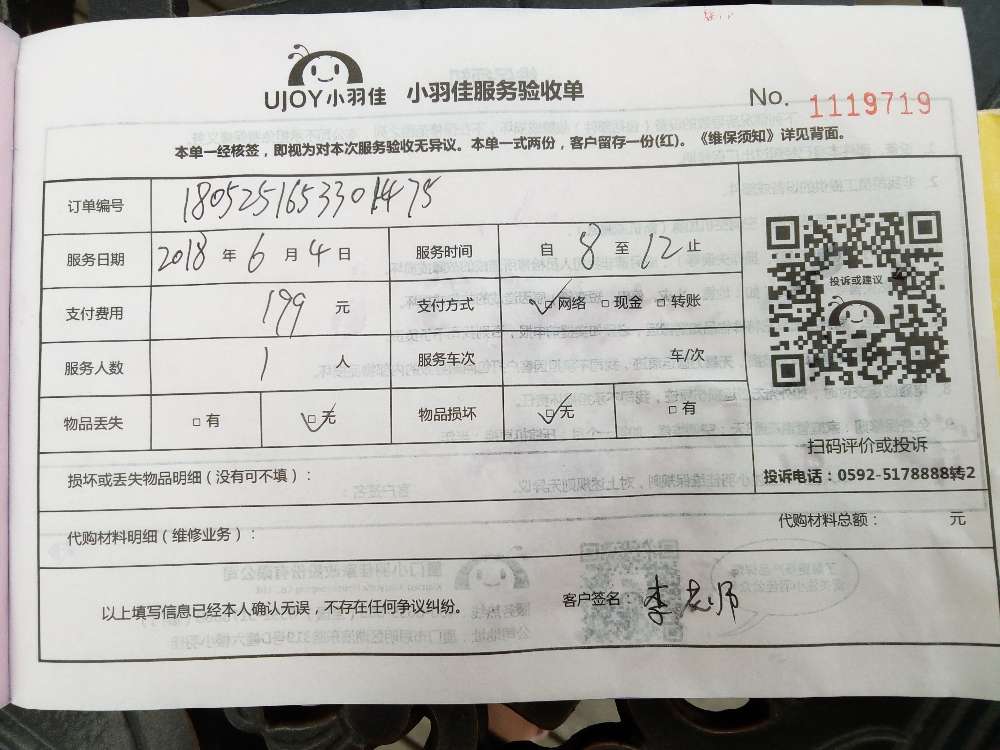 UJOY小羽佳 小羽佳服务验收单
No. 1119719
本单一经核签，即视为对本次服务验收无异议。本单一式两份，客户留存一份(红)。《维保须知》详见背面。
订单编号 1805251653301475
服务日期 2018 年 6 月 4 日 服务时间 自 8 至 12 止
支付费用 199 元 支付方式 ☑网络 □现金 □转账
服务人数 1 人 服务车次 车/次
物品丢失 □有 ☑无 物品损坏 ☑无 □有
投诉或建议
扫码评价或投诉
投诉电话：0592-5178888转2
损坏或丢失物品明细（没有可不填）：
代购材料明细（维修业务）： 代购材料总额： 元
以上填写信息已经本人确认无误，不存在任何争议纠纷。 客户签名：李老师